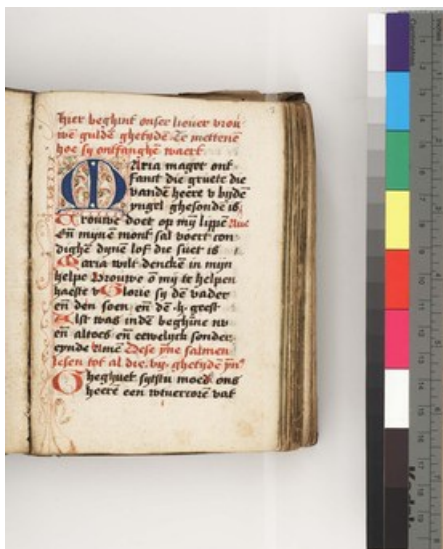 hier beghint onser liever vrou
wē guldē ghetydē Te mettenē
hoe sy ontfanghē waert
Maria maget ont
fanct die gruete die
vandē heere v bydē
yngel ghesonde is
Vrouwe doet op mȳ lippē Aue
En mynē mont sal voert con
dighē dynē lof die suet is
Maria wilt denckē in mijn
helpe Vrouwe ō mȳ te helpen
haeste v Glorie sy dē vader
eñ den soen eñ dē .h. geest
Alst was indē beghine nv
eñ altoes eñ eewelijck sonder
eynde Amē Dese
lesen tot al die .vij. ghetydē
O moed ons
heerē een vat